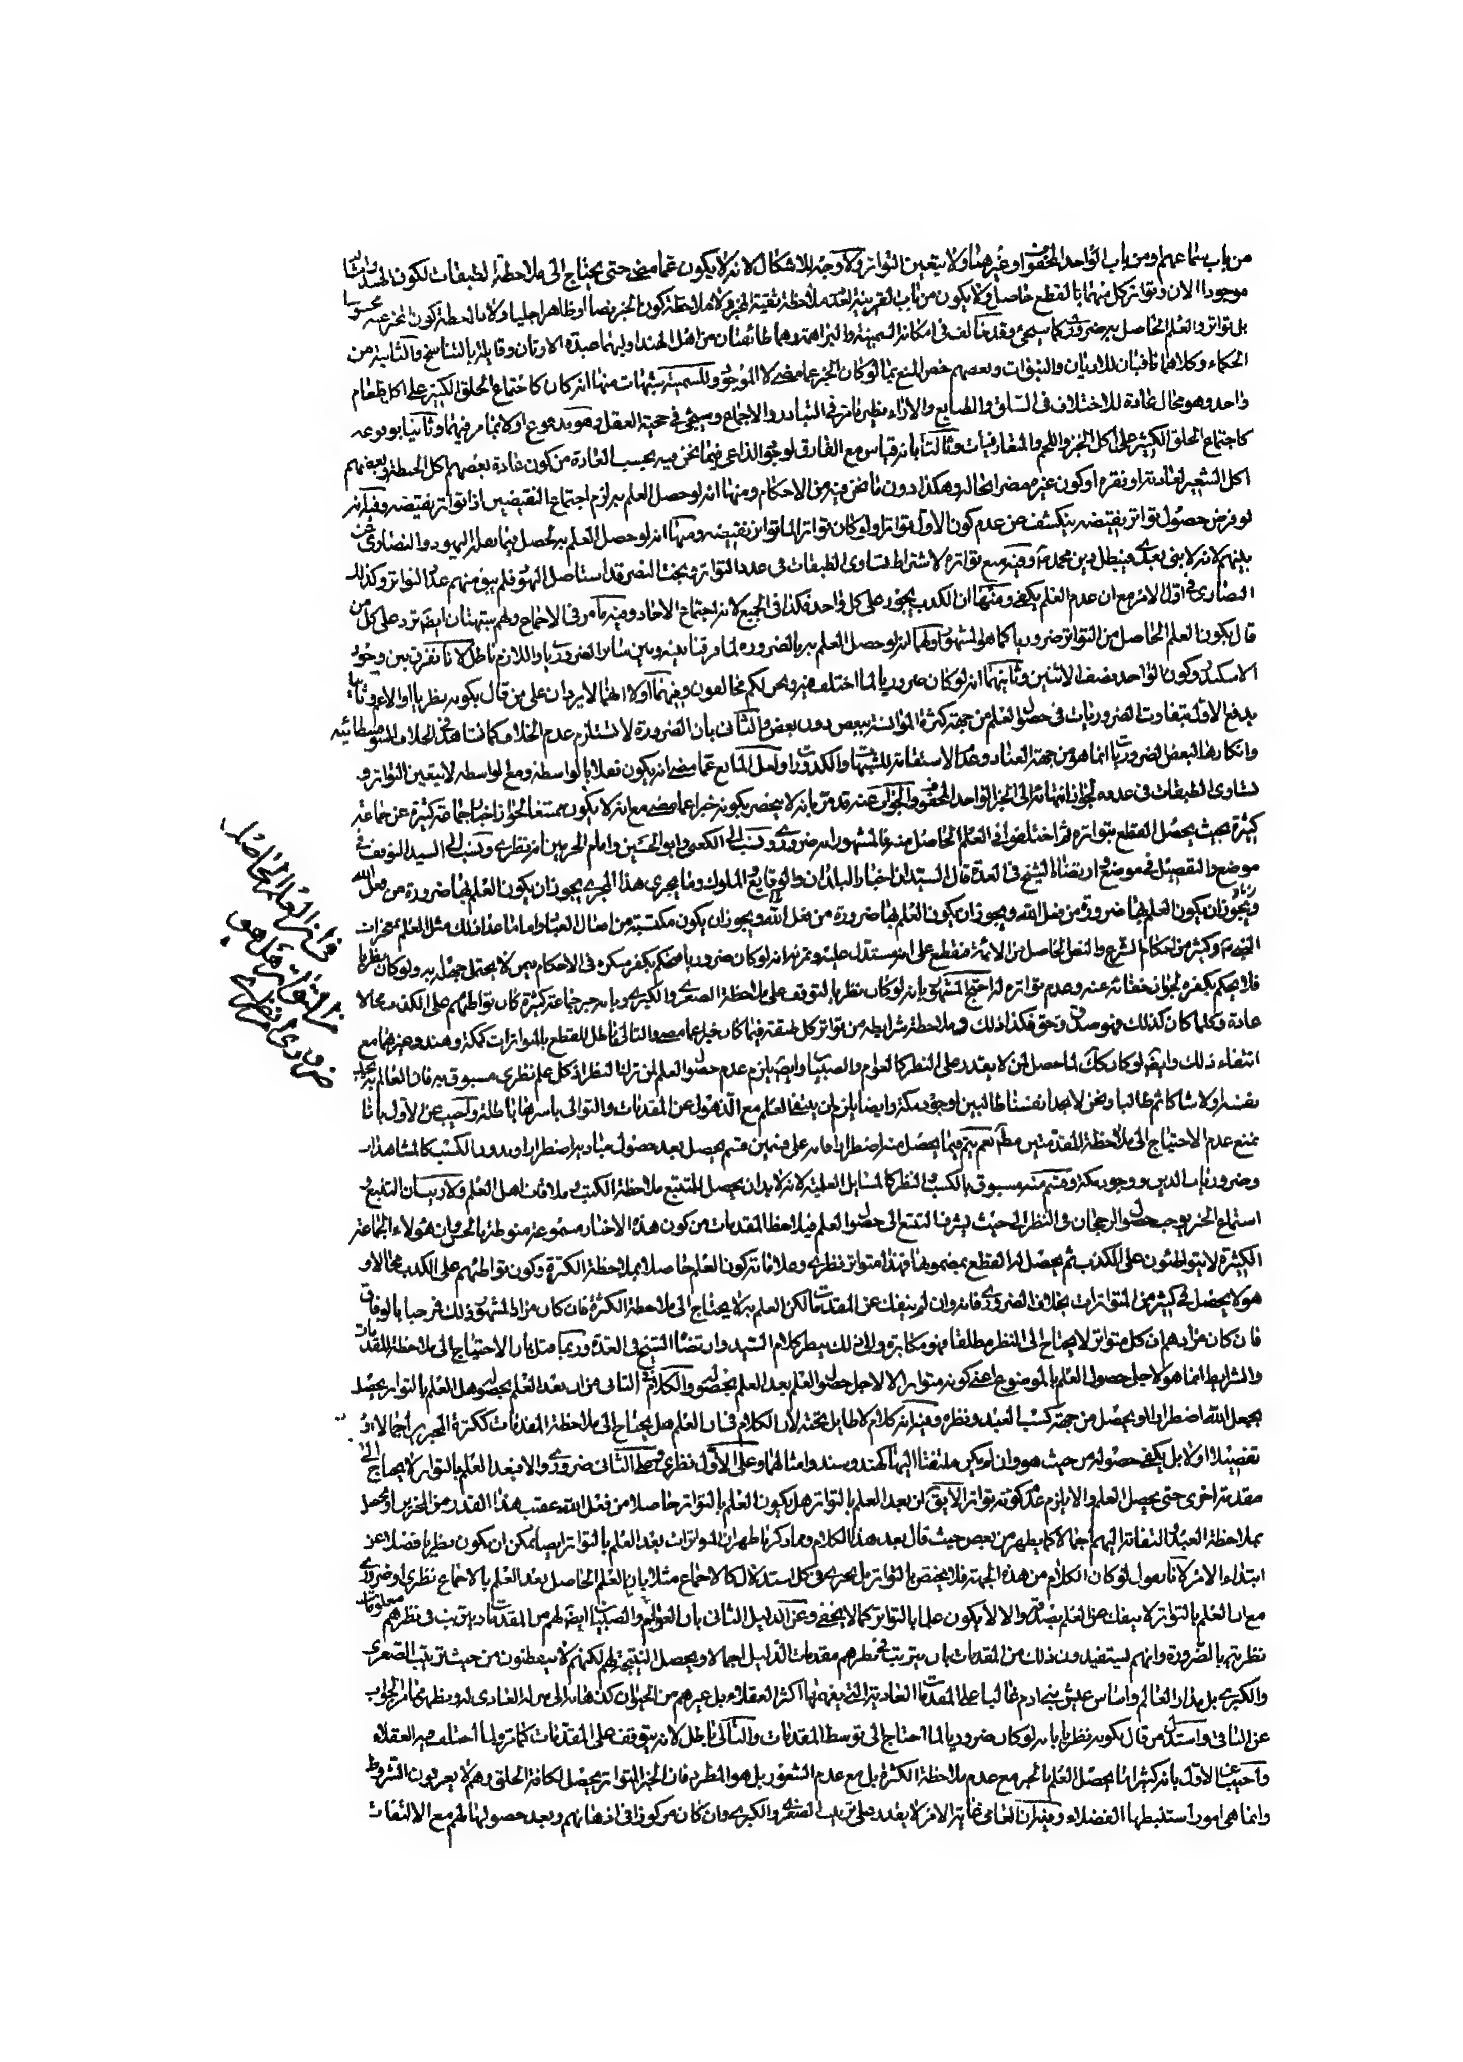 من باب سماعهم او من باب الواحد المحفوف او غيرهما ولا يتعين التواتر ولا وجه للاشكال لانه لا يكون عما مضى حتى يحتاج الى ملاحظة الطبقات لكون الهند وامثاله
موجودا الان وتواتر كل منهما بالقطع حاصل ولا يكون من باب القرينة لعدم ملاحظة ثقية المخبر ولا ملاحظة كون الخبر نصا او ظاهرا جليا ولا ملاحظة كون المخبر عنه محسوسا
بل تواتر والعلم الحاصل به ضرورى كما سيجئ وقد خالف فى امكانه السمنية والبراهمة وهما طائفتان من اهل الهند اولهما عبدة الاوثان وقايلة بالتناسخ والثانية من
الحكماء وكلاهما نافيان للاديان والنبوات وبعضهم خص المنع بما لو كان الخبر عما مضى لا الموجود وللسمنية شبهات منها انه كان كاجتماع الخلق الكثير على اكل طعام
واحد وهو محال عادة للاختلاف فى السلق والطبايع والآراء نظير ما مر فى التبادر والاجماع وسيجئ فى حجية العقل وهو مدفوع اولا بما مر فيهما وثانيا بوقوعه
كاجتماع الخلق الكثير على اكل الخبز واللحم والمتعارفات وثالثا بانه قياس مع الفارق لوجود الداعى فيما نحن فيه بحسب العادة من كون عادة بعضهم اكل الحنطة وبعضهم
اكل الشعير لعادته او فقره او كون غيره مضرا بحاله وهكذا دون ما نحن فيه من الاحكام ومنها انه لو حصل العلم به لزم اجتماع النقيضين اذا تواتر نقيضه وفيه انه
لو فرض حصول تواتر نقيضه ينكشف عن عدم كون الاول متواترا ولو كان تواترا لما تواتر نقيضه ومنها انه لو حصل العلم به لحصل فيما نقله اليهود والنصارى عن
نبيهم لانه لا نبى بعدى فيبطل دين محمد ص وفيه منع تواتره لاشتراط تساوى الطبقات فى عدد التواتر وبخت النصر قد استاصل اليهود فلم يبق منهم عدد التواتر وكذلك
النصارى فى اول الامر مع ان عدم العلم يكفى ومنها ان الكذب يجوز على كل واحد فكذا فى الجميع لانه اجتماع الاحاد وفيه ما مر فى الاجماع ولهم شبهتان ايضا ترد على كل من
قال بكون العلم الحاصل من التواتر ضروريا كما هو المشهور اولهما انه لو حصل العلم به بالضرورة لما فرقنا بينه وبين سائر الضروريات واللازم باطل لانا نفرق بين وجود
الاسكندر وكون الواحد نصف الاثنين وثانيهما انه لو كان ضروريا لما اختلف فيه ونحن لكم مخالفون وفيهما اولا انهما لا يردان على من قال بكونه نظريا او الاعم وثانيا
يدفع الاول بتفاوت الضروريات فى حصول العلم من جهة كثرة الموانسة ببعض دون بعض والثانى بان الضرورة لا تستلزم عدم الخلاف كما نشاهد فى الخلاف السوفسطائية
وانكارها لبعض الضروريات انما هو من جهة العناد وعدم الاستقامة للشبهات والكدورات ولعل المانع عما مضى انه يكون نقلا بالواسطة ومع الواسطة لا يتعين التواتر و
تساوى الطبقات فى عدده لجواز انتهائه الى الخبر الواحد المحفوف والجواب عنه قد مر بانه لا ينحصر بكونه خبرا عما مضى مع انه لا يكون ممتنعا لجواز اخبار جماعة كثيرة عن جماعة
كثيرة بحيث يحصل القطع بتواتره ثم اختلفوا فى العلم الحاصل منه فالمشهور انه ضرورى ونسب الى الكعبى وابو الحسين وامام الحرمين انه نظرى ونسب الى السيد التوقف فى
موضع والتفصيل فى موضع وارتضاه الشيخ فى العدة قال السيد ان اخبار البلدان والوقايع والملوك وما يجرى هذا المجرى يجوز ان يكون العلم بها ضرورة من فعل الله
ويجوز ان يكون العلم بها ضرورة من فعل الله ويجوز ان يكون العلم بها ضرورة من فعل الله ويجوز ان يكون مكتسبة من افعال العباد واما ما عدا ذلك مثل العلم بمعجزات
النبى ص وكثير من احكام الشرع والنص الحاصل من الائمة فنقطع على انه مستدل عليه وثمرته انه لو كان ضروريا فنحكم بكفر منكره فى الاحكام فمن لا يحتمل جهله به ولو كان نظريا
فلا نحكم بكفره لجواز خفائه عنه وعدم تواتره له احتج المشهور بانه لو كان نظريا لتوقف على ملاحظة الصغرى والكبرى وبانه خبر جماعة كثيرة كان تواطئهم على الكذب محالا
عادة وكلما كان كذلك فهو صدق وحق فكذا ذلك وملاحظة شرايطه من تواتر كل طبقة فيما كان خبرا عما مضى والتالى باطل للقطع بالمتواترات كمكة وهند وغيرهما مع
انتفاء ذلك وايضا لو كان كك لما حصل لمن لا يقدر على النظر كالعوام والصبيان وايضا يلزم عدم حصول العلم لمن ترك النظر اذ كل علم نظرى مسبوق به فان العالم به يجد
نفسه اولا شاكا ثم طالبا ونحن لا نجد انفسنا طالبين لوجود مكة وايضا يلزم ان ينتفى العلم مع الذهول عن المقدمات والتوالى باسرها باطلة واجيب عن الاول بانا
نمنع عدم الاحتياج الى ملاحظة المقدمتين مطلقا نعم يتم فيما يحصل منه اضطرارا فانه على قسمين قسم يحصل بعد حصول مباديه اضطرارا وبدون الكسب كالمشاهدات
وضروريات الدين ووجود مكة وقسم منه مسبوق بالكسب والنظر كالمسايل العلمية لانه لا بد ان يحصل للمتتبع ملاحظة الكتب وملاقات اهل العلم ولا ريب ان التتبع و
استماع الخبر يوجب حصول الرجحان والنظر الى حيث يشرف التتبع الى حصول العلم فيلاحظ المقدمات من كون هذه الاخبار مسموعة منوطة بالحس وان هؤلاء الجماعة
الكثيرة لا يتواطئون على الكذب ثم يحصل له القطع بمضمونها فهذا متواتر نظرى وعلاماته كون العلم حاصلا بملاحظة الكثرة وكون تواطئهم على الكذب محالا و
هو لا يحصل فى كثير من المتواترات بخلاف الضرورى فانه وان لم ينفك عن المقدمات لكن العلم به لا يحتاج الى ملاحظة الكثرة فان كان مراد المشهور ذلك فمرحبا بالوفاق
فان كان مرادهم ان كل متواتر لا يحتاج الى النظر مطلقا فهو مكابرة والى ذلك ينظر كلام السيد وارتضاه الشيخ فى العدة وربما قيل بان الاحتياج الى ملاحظة المقدمات
والشرايط انما هو لاجل حصول العلم بالموضوع اعنى كونه متواترا لا لاجل حصول العلم بعد العلم بحصوله والكلام فى الثانى مراد بعد العلم بحصوله وهل العلم بالتواتر يحصل
بجعل الله اضطرارا او يحصل من جهة كسب العبد ونظره وفيه انه كلام لا طايل تحته لان الكلام فى ان العلم هل يحتاج الى ملاحظة المقدمات ككثرة المخبرين اجمالا او
تفصيلا او لا بل يكفى حصوله من حيث هو وان لم يكن ملتفتا اليها كهند وسند وامثالهما وعلى الاول نظرى وعلى الثانى ضرورى والا فبعد العلم بالتواتر لا يحتاج الى
مقدمة اخرى حتى يحصل العلم والا يلزم عدم كونه تواترا لا يق ان بعد العلم بالتواتر هل يكون العلم بالتواتر حاصلا من فعل الله عقيب هذا القدر من المخبرين او يحصل
بملاحظة العبد والتفاته اليهم اجمالا كما يظهر من بعض حيث قال بعد هذا الكلام ومما ذكرنا ظهر ان المتواترات بعد العلم بالتواتر ايضا يمكن ان يكون نظريا فضلا عن
ابتداء الامر لانا نقول لو كان الكلام من هذه الجهة فلا يختص بالتواتر بل يجرى فى كل استدلال كالاجماع مثلا بان العلم الحاصل بعد العلم بالاجماع نظرى او ضرورى
مع ان العلم بالتواتر لا ينفك عن العلم بصدقه والا لا يكون علما بالتواتر كما لا يخفى وعن الدليل الثانى بان العوام والصبيان ايضا لهم من المقدمات معلومات يترتب فى نظرهم
نظرتهم بالضرورة وانهم يستفيدون ذلك من المقدمات بان يترتب فى نظرهم مقدمات الدليل اجمالا ويحصل النتيجة لهم لكنهم لا يتفطنون من حيث ترتيب الصغرى
والكبرى بل مدار العالم واساس عيش بنى ادم غالبا على المقدمات العادية التى يفهمها اكثر العقلاء بل غيرهم من الحيوان كذهابه الى ميله العادى له ويظهر مما مر الجواب
عن الباقى واستدل من قال بكونه نظريا بانه لو كان ضروريا لما احتاج الى توسط المقدمات والتالى باطل لانه يتوقف على المقدمات كما مر ولما اختلف فيه العقلاء
واجيب عن الاول بانه كثيرا ما يحصل العلم بالخبر مع عدم ملاحظة الكثرة بل مع عدم الشعور بل هو المطرد فان الخبر المتواتر يحصل لكافة الخلق وهم لا يعرفون الشروط
وانما هى امور استنبطها الفضلاء وفيه ان العامى غاية الامر لا يقدر على ترتيب الصغرى والكبرى وان كان مركوزا فى اذهانهم وبعد حصولها لهم مع الالتفات
فى ان العلم الحاصل
من المتواتر هل هو
ضرورى او نظرى